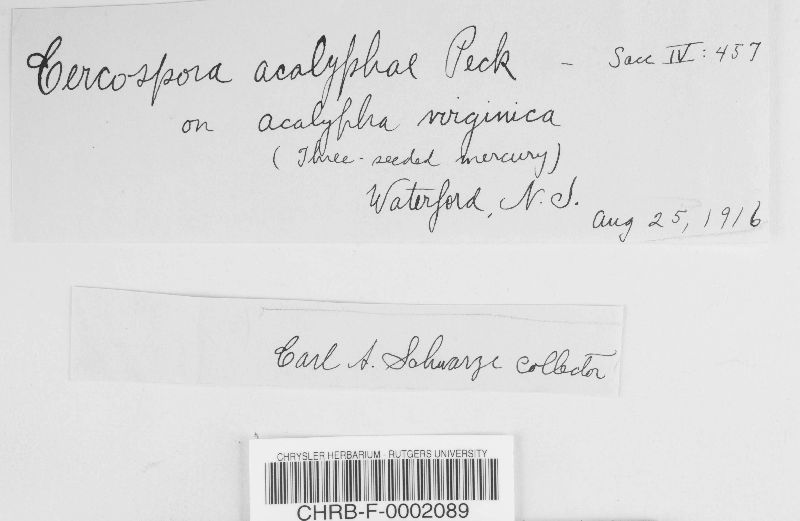 Cercospora acalyphae Peck - Sacc IV: 457
on acalypha virginica
(Three-seeded mercury)
Waterford, N.J.
Aug 25, 1916
Carl A. Schwarze collector
CHRYSLER HERBARIUM - RUTGERS UNIVERSITY
CHRB-F-0002089